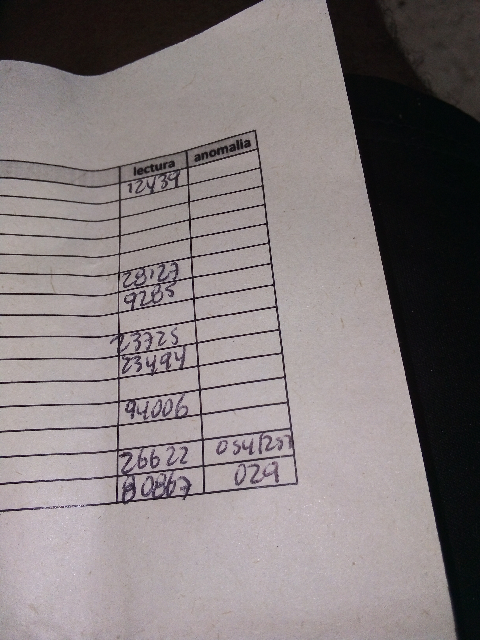 lectura anomalia
12439
28127
9285
23725
23494
94006
26622 054/257
80867 029